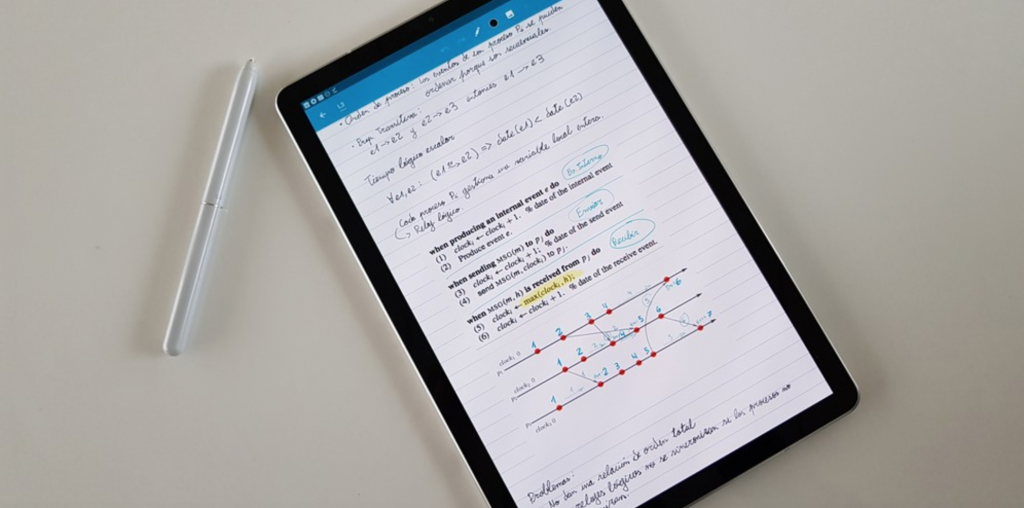 L3
• Orden de proceso: los eventos de un proceso Pi se pueden
ordenar porque son secuenciales.
• Bajo Transitiva:
e1 → e2 y e2 → e3 entonces e1 → e3
Tiempo lógico escalar
∀e1,e2: (e1 → e2) => date(e1) < date(e2)
Cada proceso Pi gestiona una variable local entera.
↳ Reloj lógico
when producing an internal event e do
Ev. Interno
(1) clocki ← clocki + 1. % date of the internal event
(2) Produce event e.
when sending MSG(m) to Pj do
Enviar
(3) clocki ← clocki + 1; % date of the send event
(4) send MSG(m, clocki) to Pj.
when MSG(m, h) is received from Pj do
Recibir
(5) clocki ← max(clocki, h);
(6) clocki ← clocki + 1. % date of the receive event.
clocki 0
Pi
1 2 3 4 6
clocki 0
Pi
1 2 4 5 6 7
1 2 3 4 5
Pi
clocki 0
Problemas:
No dan una relación de orden total
relojes lógicos no se sincronizan si los procesos no